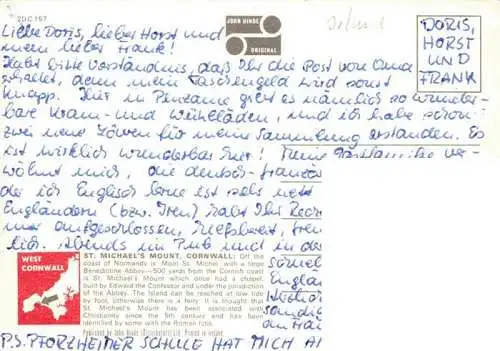 2DC 157
JOHN HINDE
ORIGINAL
DORIS,
HORST
UND
FRANK
Liebe Doris, lieber Horst und
mein lieber Frank!
Habt bitte Verständnis, daß Ihr die Post von Oma
erhaltet, denn mein Taschengeld wird sonst
knapp. Hier in Penzance gibt es nämlich so wunder-
bare Kram- und Wühlläden, und ich habe schon
zwei neue Löwen für meine Sammlung erstanden. Es
ist wirklich wunderbar hier! Meine Gastfamilie ver-
wöhnt mich, die deutsch-französ
der ich Englisch lerne ist sehr nett
Engländern (bzw. Iren) habt Ihr Rech
nur aufgeschlossen, hilfsbereit, freu
lich. Abends im Pub und in de
WEST
CORNWALL
ST. MICHAEL'S MOUNT, CORNWALL: Off the
coast of Normandy is Mont St. Michel with a large
Benedictine Abbey—500 yards from the Cornish coast
is St. Michael's Mount which once had a chapel,
built by Edward the Confessor and under the jurisdiction
of the Abbey. The Island can be reached at low tide
by foot, otherwise there is a ferry. It is thought that
St. Michael's Mount has been associated with
Christianity since the 5th century and has been
identified by some with the Roman Ictis.
Published by John Hinde Printed in Ireland
P.S. PFORZHEIMER SCHULE HAT MICH A